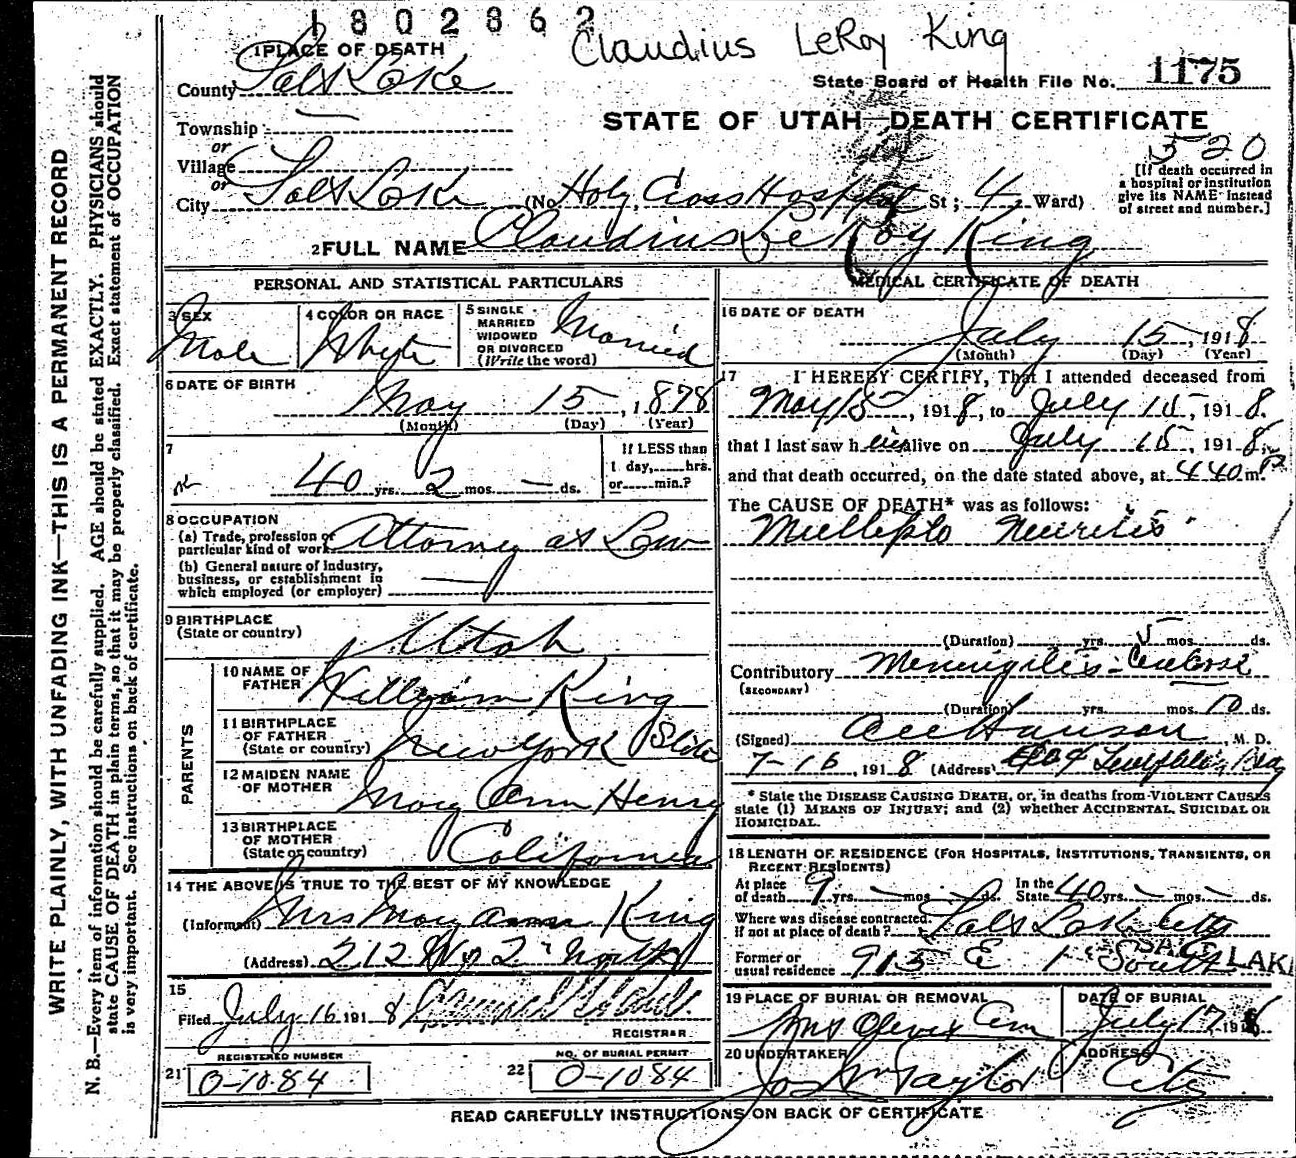 1802862
Claudius LeRoy King
State Board of Health File No. 1175
STATE OF UTAH—DEATH CERTIFICATE
520
[If death occurred in
a hospital or institution
give its NAME instead
of street and number.]
1 PLACE OF DEATH
County Salt Lake
Township —
or
Village
or
City Salt Lake (No. Holy Cross Hospital St; 4 Ward)
2 FULL NAME Claudius Le Roy King
PERSONAL AND STATISTICAL PARTICULARS
3 SEX
Male
4 COLOR OR RACE
White
5 SINGLE
MARRIED
WIDOWED
OR DIVORCED
(Write the word)
Married
6 DATE OF BIRTH
May 15, 1878
(Month) (Day) (Year)
7
40 yrs. 2 mos. — ds.
If LESS than
1 day, hrs.
or min.?
8 OCCUPATION
(a) Trade, profession or
particular kind of work Attorney at Law
(b) General nature of Industry,
business, or establishment in
which employed (or employer) —
9 BIRTHPLACE
(State or country) Utah
PARENTS
10 NAME OF
FATHER William King
11 BIRTHPLACE
OF FATHER
(State or country) New York State
12 MAIDEN NAME
OF MOTHER Mary Ann Henry
13 BIRTHPLACE
OF MOTHER
(State or country) California
14 THE ABOVE IS TRUE TO THE BEST OF MY KNOWLEDGE
(Informant) Mrs Mary Ann King
(Address) 212 W 2 North
15
Filed July 16 1918
REGISTRAR
REGISTERED NUMBER
21 0-1084
NO. OF BURIAL PERMIT
22 0-1084
MEDICAL CERTIFICATE OF DEATH
16 DATE OF DEATH
July 15, 1918
(Month) (Day) (Year)
17 I HEREBY CERTIFY, That I attended deceased from
May 15, 1918, to July 15, 1918.
that I last saw h im alive on July 15, 1918,
and that death occurred, on the date stated above, at 4 40 m. P
The CAUSE OF DEATH* was as follows:
Multiple Neuritis
(Duration) yrs. 5 mos. ds.
Contributory Meningitis-
(SECONDARY)
(Duration) yrs. mos. 10 ds.
(Signed) Hanson, M. D.
7-16, 1918 (Address)
* State the DISEASE CAUSING DEATH, or, in deaths from VIOLENT CAUSES
state (1) MEANS OF INJURY; and (2) whether ACCIDENTAL, SUICIDAL OR
HOMICIDAL.
18 LENGTH OF RESIDENCE (FOR HOSPITALS, INSTITUTIONS, TRANSIENTS, OR
RECENT RESIDENTS)
At place
of death 9 yrs. — mos. — ds. In the
State 40 yrs. — mos. — ds.
Where was disease contracted,
if not at place of death? Salt Lake City
Former or
usual residence 915 E 1st South SALT LAKE
19 PLACE OF BURIAL OR REMOVAL
Mt Olivet Cem
DATE OF BURIAL
July 17, 1918
20 UNDERTAKER
Jos Wm Taylor
ADDRESS
City
READ CAREFULLY INSTRUCTIONS ON BACK OF CERTIFICATE
WRITE PLAINLY, WITH UNFADING INK—THIS IS A PERMANENT RECORD
N. B.—Every item of information should be carefully supplied. AGE should be stated EXACTLY. PHYSICIANS should
state CAUSE OF DEATH in plain terms, so that it may be properly classified. Exact statement of OCCUPATION
is very important. See instructions on back of certificate.